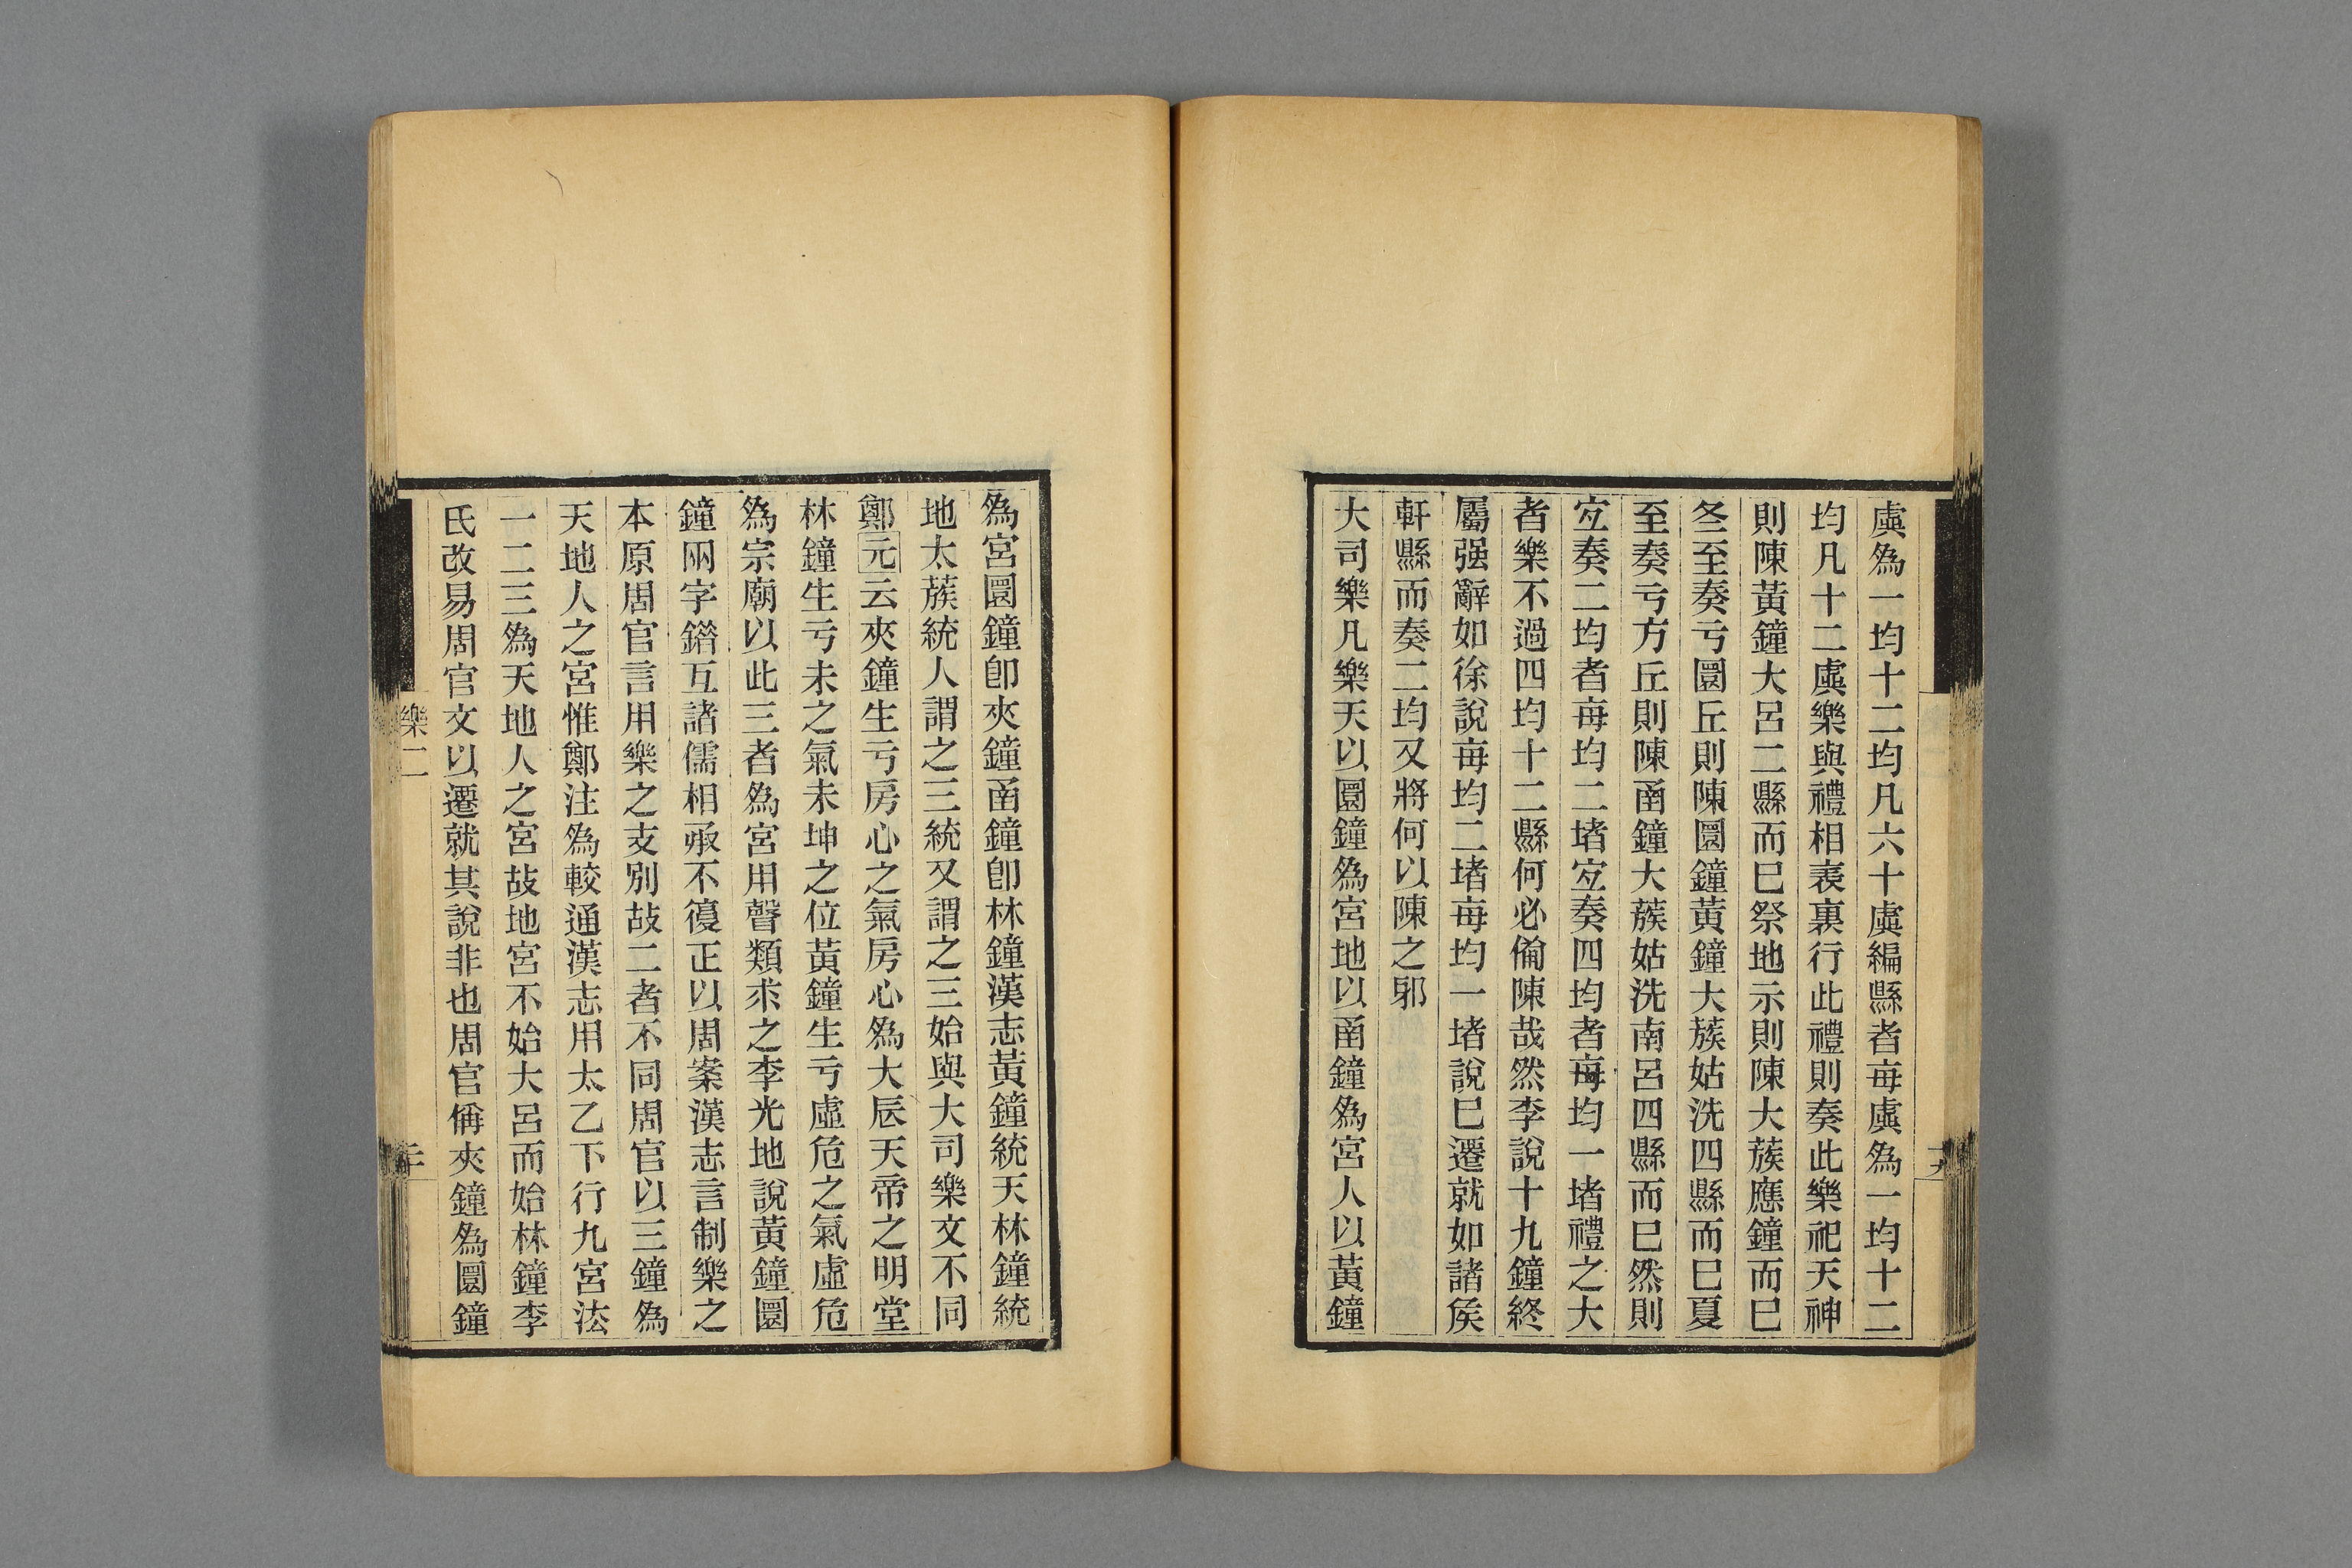 虡爲一均十二均凡六十虡編縣者每虡爲一均十二
均凡十二虡樂與禮相表裏行此禮則奏此樂祀天神
則陳黃鐘大呂二縣而巳祭地示則陳大蔟應鐘而巳
冬至奏亏圜丘則陳圜鐘黃鐘大蔟姑洗四縣而巳夏
至奏亏方丘則陳函鐘大蔟姑洗南呂四縣而巳然則
宐奏二均者每均二堵宐奏四均者每均一堵禮之大
者樂不過四均十二縣何必僃陳哉然李說十九鐘終
屬强辭如徐說每均二堵每均一堵說巳遷就如諸矦
軒縣而奏二均又將何以陳之邪
大司樂凡樂天以圜鐘爲宮地以函鐘爲宮人以黃鐘
十九
爲宮圜鐘卽夾鐘函鐘卽林鐘漢志黃鐘統天林鐘統
地太蔟統人謂之三統又謂之三始與大司樂文不同
鄭元云夾鐘生亏房心之氣房心爲大辰天帝之明堂
林鐘生亏未之氣未坤之位黃鐘生亏虛危之氣虛危
爲宗廟以此三者爲宮用聲類求之李光地說黃鐘圜
鐘兩字錯互諸儒相承不復正以周案漢志言制樂之
本原周官言用樂之支別故二者不同周官以三鐘爲
天地人之宮惟鄭注爲較通漢志用太乙下行九宮法
一二三爲天地人之宮故地宮不始大呂而始林鐘李
氏改易周官文以遷就其說非也周官偁夾鐘爲圜鐘
樂二
二十